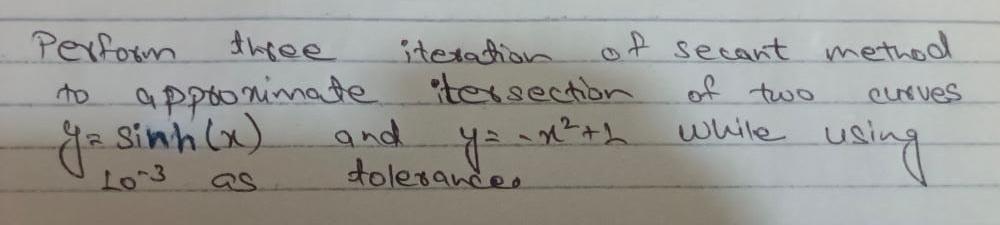 Perform three iteration of secant method
to approximate itersection of two curves
y = sinh(x) and y = -x²+1 while using
10⁻³ as tolerance.